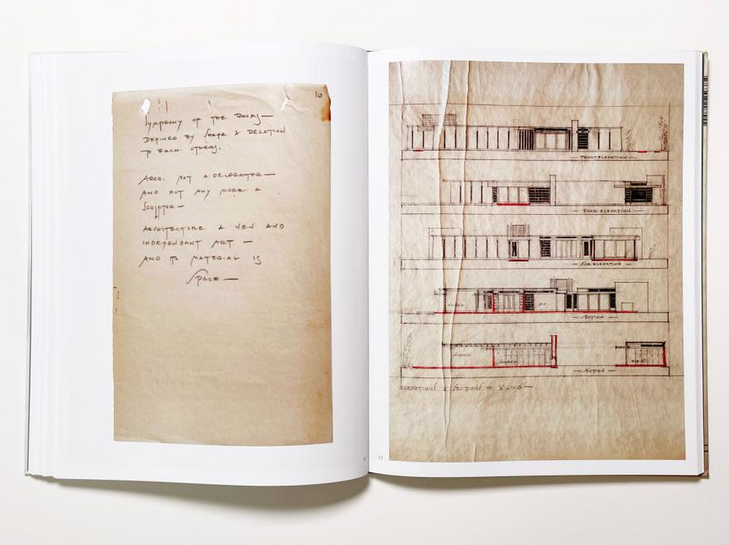 10
SYMPHONY OF THE ROOMS —
DEFINED BY SHAPE & RELATION
TO EACH OTHERS.
ARCH. NOT A DECORATOR —
AND NOT ANY MORE A
SCULPTOR —
ARCHITECTURE A NEW AND
INDEPENDANT ART —
AND ITS MATERIAL IS
SPACE —
— FRONT ELEVATION —
— REAR ELEVATION —
— SIDE ELEVATION —
— SECTION —
— SECTION —
ELEVATIONS & SECTIONS —